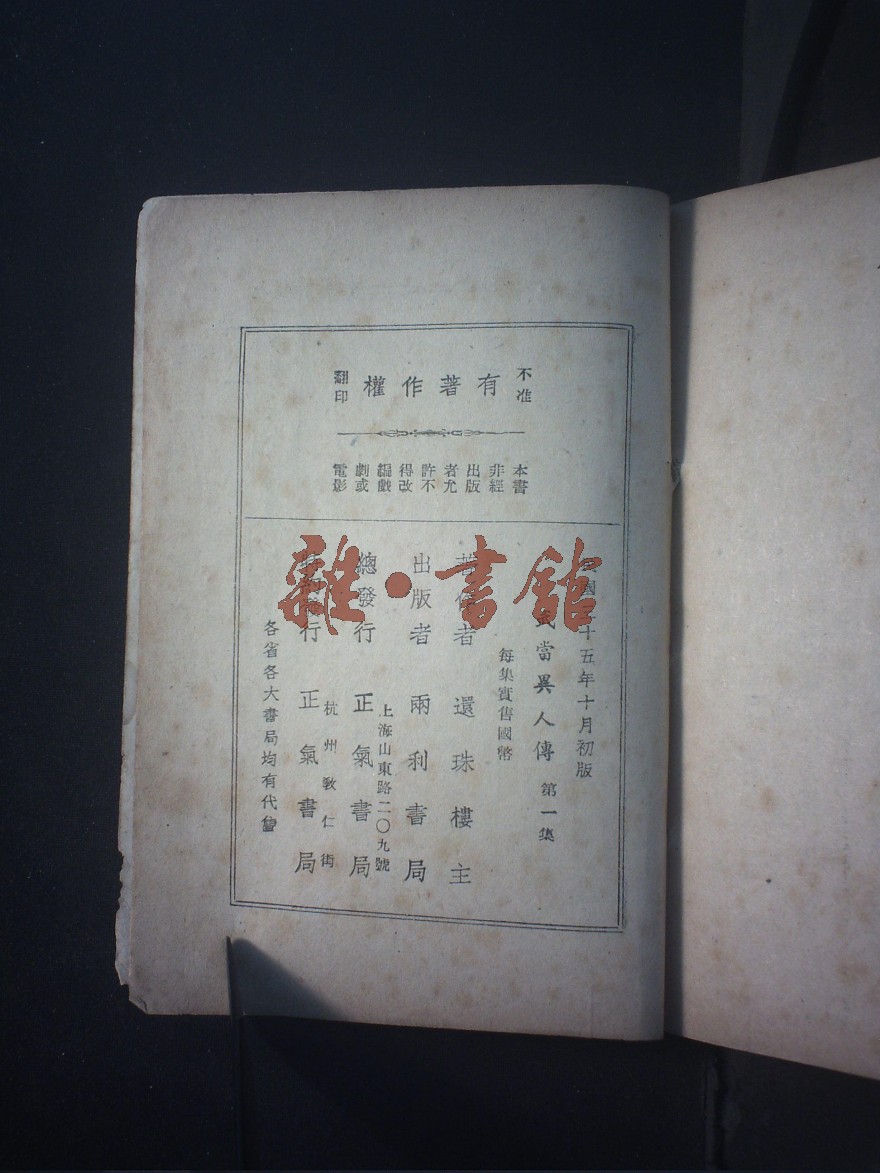 不准 有著作權 翻印
本書非經出版者允許不得改編戲劇或電影
國 十五年十月初版
武當異人傳 第一集
每集實售國幣
著作者 還珠樓主
出版者 兩利書局
上海山東路二〇九號
總發行 正氣書局
杭州教仁街
發行 正氣書局
各省各大書局均有代售
雜·書館